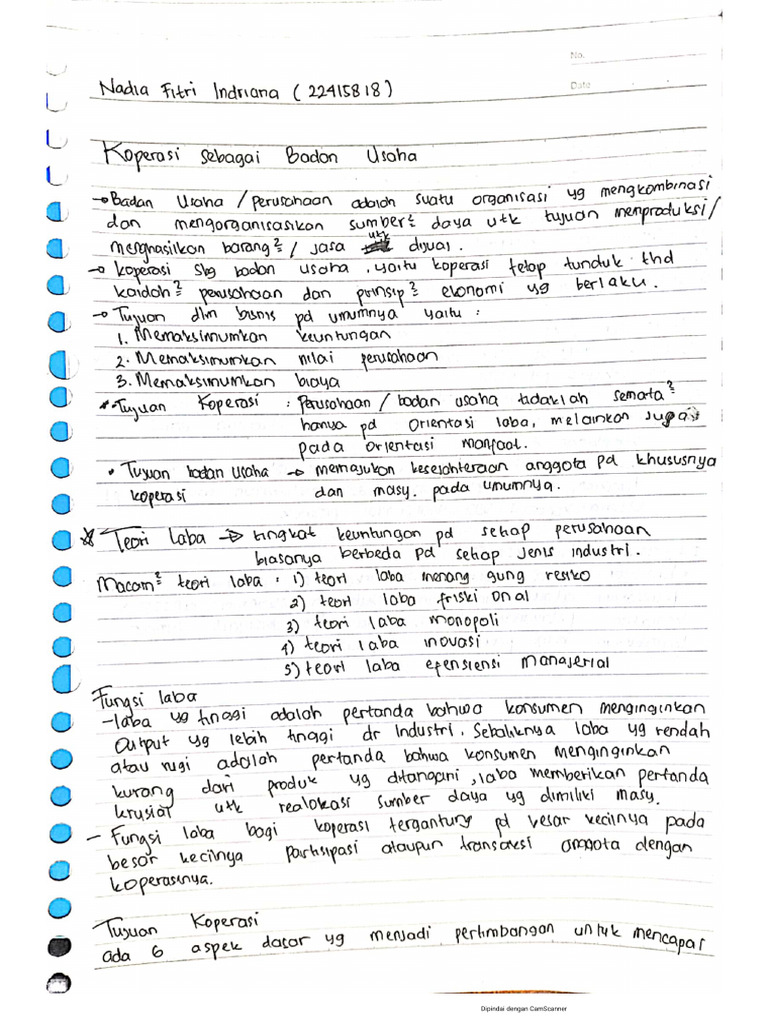 No.
Date
Nadia Fitri Indriana (22415818)
Koperasi sebagai Badan Usaha
→ Badan Usaha / perusahaan adalah suatu organisasi yg mengkombinasi
dan mengorganisasikan sumber² daya utk tujuan memproduksi/
menghasilkan barang² / jasa utk dijual.
→ Koperasi sbg badan usaha, yaitu koperasi tetap tunduk thd
kaidah² perusahaan dan prinsip² ekonomi yg berlaku.
→ Tujuan dlm bisnis pd umumnya yaitu :
1. Memaksimumkan keuntungan
2. Memaksimumkan nilai perusahaan
3. Memaksimumkan biaya
• Tujuan Koperasi : Perusahaan / badan usaha tidaklah semata²
hanya pd orientasi laba, melainkan juga
pada orientasi manfaat.
• Tujuan badan usaha → memajukan kesejahteraan anggota pd khususnya
koperasi dan masy. pada umumnya.
☆ Teori laba → tingkat keuntungan pd setiap perusahaan
biasanya berbeda pd setiap jenis industri.
Macam² teori laba : 1) teori laba menang gung resiko
2) teori laba friski onal
3) teori laba monopoli
4) teori laba inovasi
5) teori laba efensiensi manajerial
Fungsi laba
- laba yg tinggi adalah pertanda bahwa konsumen menginginkan
output yg lebih tinggi dr industri. Sebaliknya laba yg rendah
atau rugi adalah pertanda bahwa konsumen menginginkan
kurang dari produk yg ditangani, laba memberikan pertanda
krusial utk realokasi sumber daya yg dimiliki masy.
- Fungsi laba bagi koperasi tergantung pd vesar kecilnya pada
besar kecilnya partisipasi ataupun transaksi anggota dengan
koperasinya.
Tujuan Koperasi
ada 6 aspek dasar yg menjadi pertimbangan untuk mencapai
Dipindai dengan CamScanner